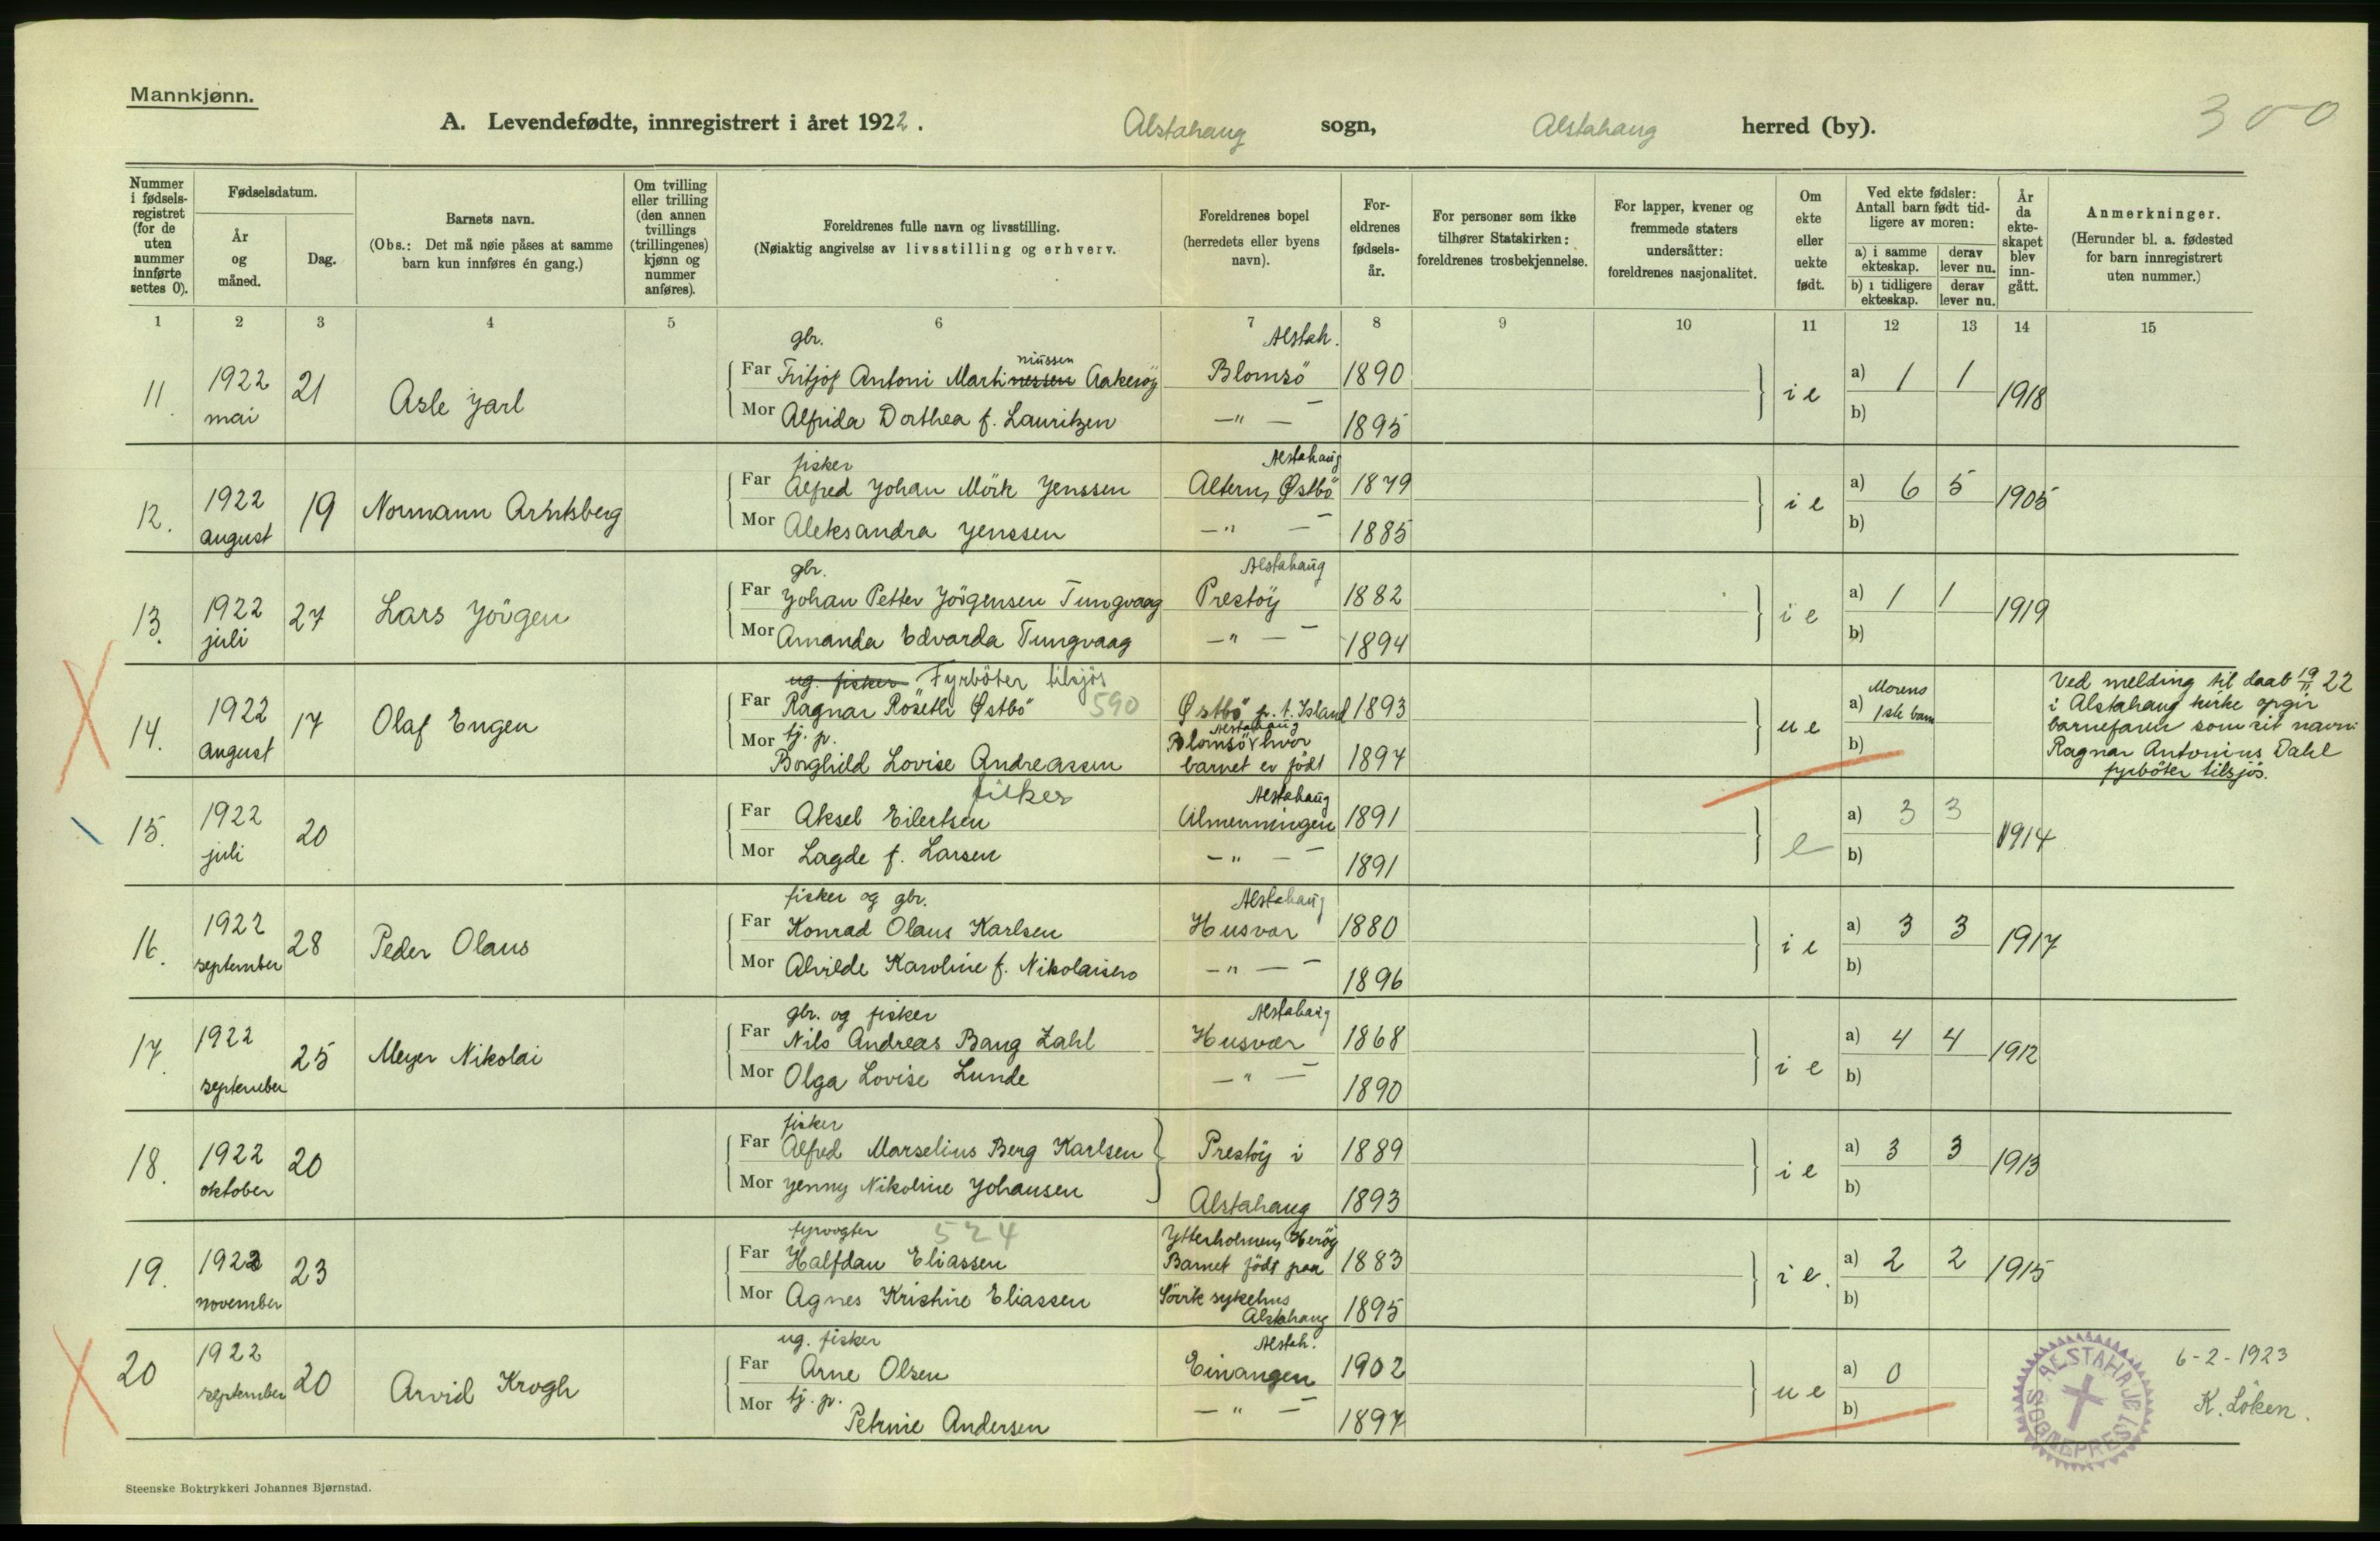 Mannkjønn.
A. Levendefødte, innregistrert i året 1922. Alstahaug sogn, Alstahaug herred (by). 300
Nummer i fødselsregistret (for de uten nummer innførte settes 0).
Fødselsdatum.
År og måned.
Dag.
Barnets navn.
(Obs.: Det må nøie påses at samme barn kun innføres én gang.)
Om tvilling eller trilling (den annen tvillings (trillingenes) kjønn og nummer anføres).
Foreldrenes fulle navn og livsstilling.
(Nøiaktig angivelse av livsstilling og erhverv.
Foreldrenes bopel (herredets eller byens navn).
Foreldrenes fødselsår.
For personer som ikke tilhører Statskirken: foreldrenes trosbekjennelse.
For lapper, kvener og fremmede staters undersåtter: foreldrenes nasjonalitet.
Om ekte eller uekte født.
Ved ekte fødsler: Antall barn født tidligere av moren:
a) i samme ekteskap. derav lever nu.
b) i tidligere ekteskap. derav lever nu.
År da ekteskapet blev inngått.
Anmerkninger.
(Herunder bl. a. fødested for barn innregistrert uten nummer.)
1 2 3 4 5 6 7 8 9 10 11 12 13 14 15
gbr. Alstah.
11. 1922 mai 21 Asle Jarl
Far Fritjof Antoni Martinessen niussen Aakerøy Blomsö 1890
Mor Alfrida Dorthea f. Lauritzen —"— 1895
i e a) 1 1 b) 1918
fisker Alstahaug
12. 1922 august 19 Normann
Far Alfred Johan Mörk Jenssen Altern, Østbö 1879
Mor Aleksandra Jenssen —"— 1885
i e a) 6 5 b) 1905
gbr. Alstahaug
13. 1922 juli 27 Lars Jörgen
Far Johan Petter Jörgensen Tungvaag Prestöy 1882
Mor Amanda Edvarda Tungvaag —"— 1894
i e a) 1 1 b) 1919
ug. fisker Fyrböter tilsjös
14. 1922 august 17 Olaf Engen
Far Ragnar Röseth Østbö 590 Østbö p. t. Island 1893
Mor tj. p. Alstahaug
Borghild Lovise Andreassen Blomsö hvor barnet er födt 1897
u e a) Morens 1ste barn b)
Ved melding til daab 19/11 22
i Alstahaug kirke opgir
barnefaren som sit navn:
Ragnar Antonius Dahl
fyrböter tilsjös.
fisker Alstahaug
15. 1922 juli 20
Far Aksel Eilertsen Almenningen 1891
Mor Lagde f. Larsen —"— 1891
e a) 3 3 b) 1914
fisker og gbr. Alstahaug
16. 1922 september 28 Peder Olaus
Far Konrad Olaus Karlsen Husvær 1880
Mor Alvilde Karoline f. Nikolaisen —"— 1896
i e a) 3 3 b) 1917
gbr. og fisker Alstahaug
17. 1922 september 25 Meyer Nikolai
Far Nils Andreas Bang Zahl Husvær 1868
Mor Olga Lovise Lunde —"— 1890
i e a) 4 4 b) 1912
fisker
18. 1922 oktober 20
Far Alfred Marselius Berg Karlsen Prestöy i 1889
Mor Jenny Nikoline Johansen Alstahaug 1893
i e a) 3 3 b) 1913
fyrvogter 524 Ytterholmen, Heröy
19. 1922 november 23
Far Halfdan Eliassen Barnet födt paa 1883
Mor Agnes Kristine Eliassen Sövik sykehus Alstahaug 1895
i e. a) 2 2 b) 1915
ug. fisker Alstah.
20 1922 september 20 Arvid Krogh
Far Arne Olsen Einangen 1902
Mor tj. p. Petrine Andersen —"— 1897
u e a) 0 b)
6-2-1923
K. Löken.
ALSTAHAUG SOGNEPREST
Steenske Boktrykkeri Johannes Bjørnstad.